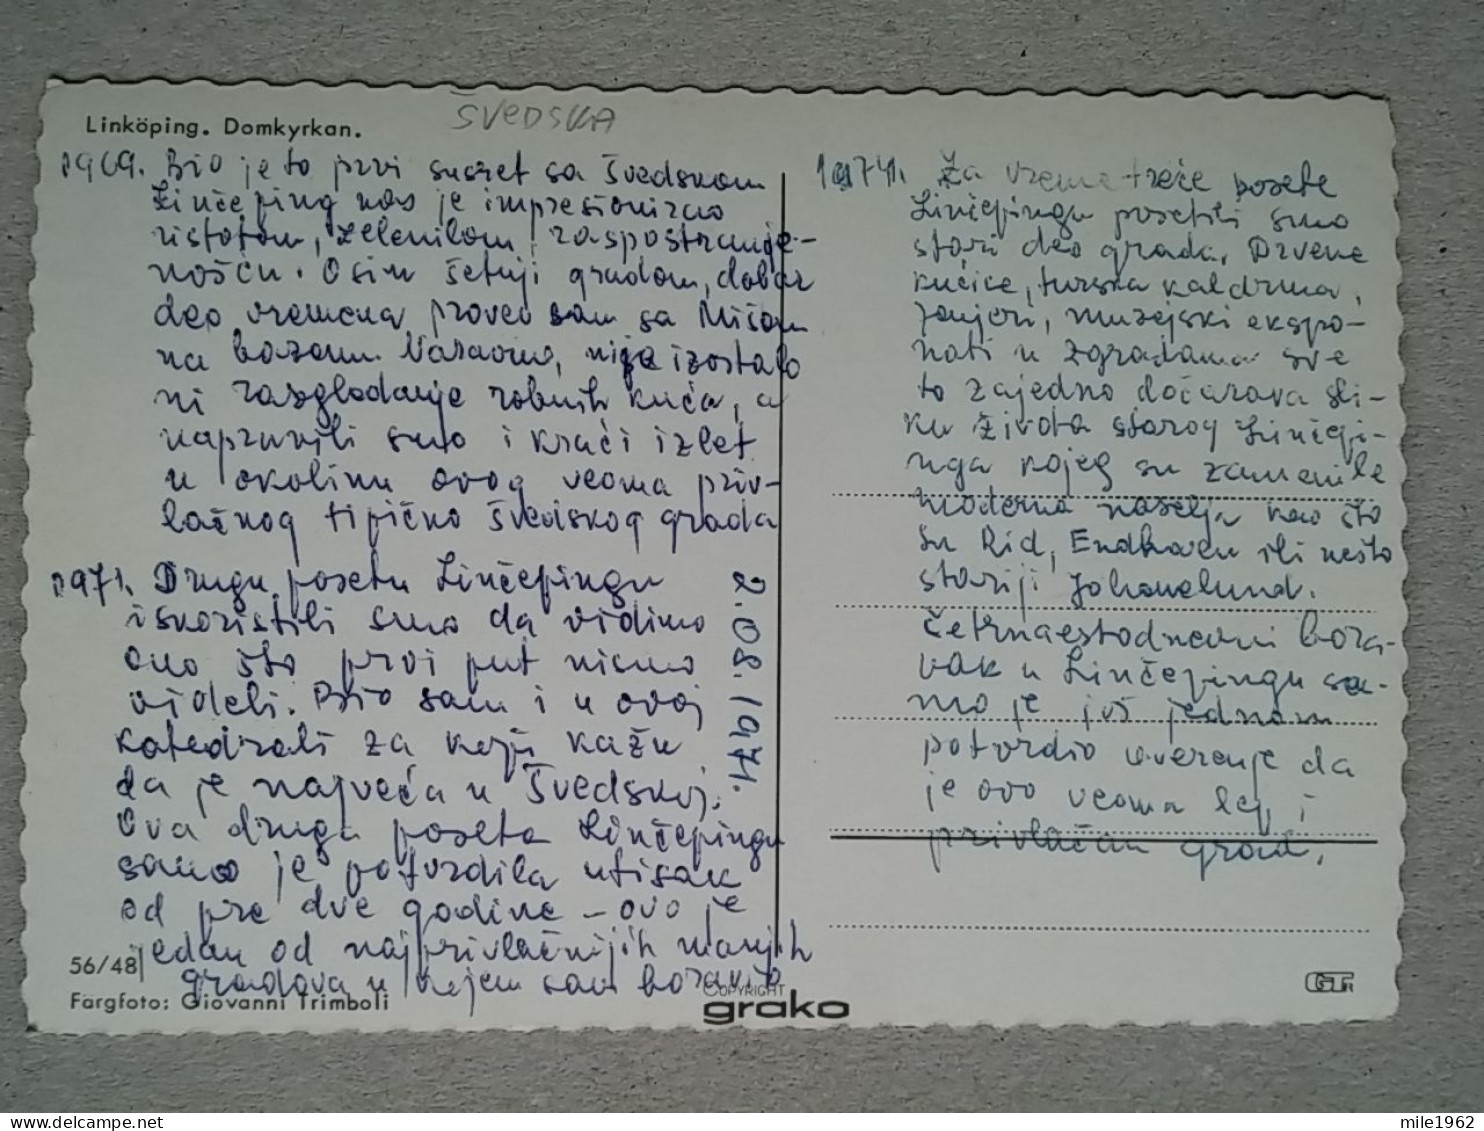 ŠVEDSKA
Linköping. Domkyrkan.
1969. Bio je to prvi susret sa Švedskom
Linčeping nas je impresionirao
ristotom, zelenilom, raspostranje-
nošću. Osim šetnji gradom, dobar
deo vremena proveo sam sa Mišom
na bazenu. Naravno, nije izostalo
ni razgledanje robnih kuća, a
napravili smo i kraći izlet
u okolinu ovog veoma priv-
lačnog tipično švedskog grada
1971. Drugu posetu Linčepingu
iskoristili smo da vidimo
ono što prvi put nismo
videli. Bio sam i u ovoj
katedrali za koju kažu
da je najveća u Švedskoj.
Ova druga poseta Linčepingu
samo je potvrdila utisak
od pre dve godine - ovo je
jedan od najprivlačnijih manjih
gradova u kojem sam boravio
2.08.1971.
56/48
Färgfoto: Giovanni Trimboli
COPYRIGHT
grako
1974. Za vreme treće posete
Linčepingu posetili smo
stari deo grada. Drvene
kućice, turska kaldrma,
fenjeri, muzejski ekspo-
nati u zgradama sve
to zajedno dočarava sli-
ku života starog Linčepi-
nga kojeg su zamenile
moderna naselja kao što
su Rid, Endhoven ili nešto
stariji Johanelund.
Četrnaestodnevni bora-
vak u Linčepingu sa-
mo je još jednom
potvrdio uverenje da
je ovo veoma lep i
privlačan grad.
mile1962